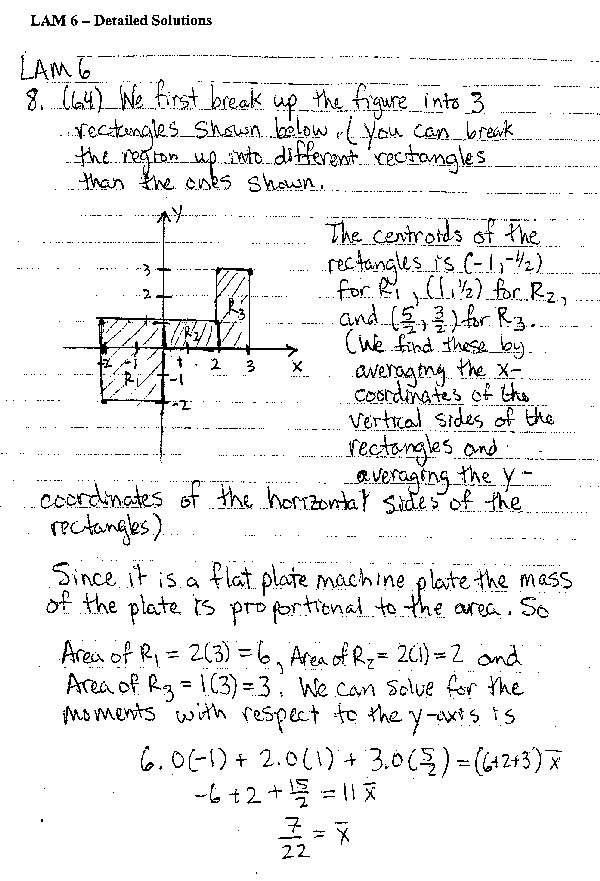 LAM 6 – Detailed Solutions
LAM 6
8. (64) We first break up the figure into 3
rectangles shown below. (You can break
the region up into different rectangles
than the ones shown.
y
3
2
R3
R2
-2 -1 1 2 3 x
R1 -1
-2
The centroids of the
rectangles is (-1, -1/2)
for R1, (1, 1/2) for R2,
and (5/2, 3/2) for R3.
(We find these by
averaging the x-
coordinates of the
vertical sides of the
rectangles and
averaging the y-
coordinates of the horizontal sides of the
rectangles)
Since it is a flat plate machine plate the mass
of the plate is proportional to the area. So
Area of R1 = 2(3) = 6, Area of R2 = 2(1) = 2 and
Area of R3 = 1(3) = 3. We can solve for the
moments with respect to the y-axis is
6.0(-1) + 2.0(1) + 3.0(5/2) = (6+2+3) x̄
-6 + 2 + 15/2 = 11 x̄
7/22 = x̄